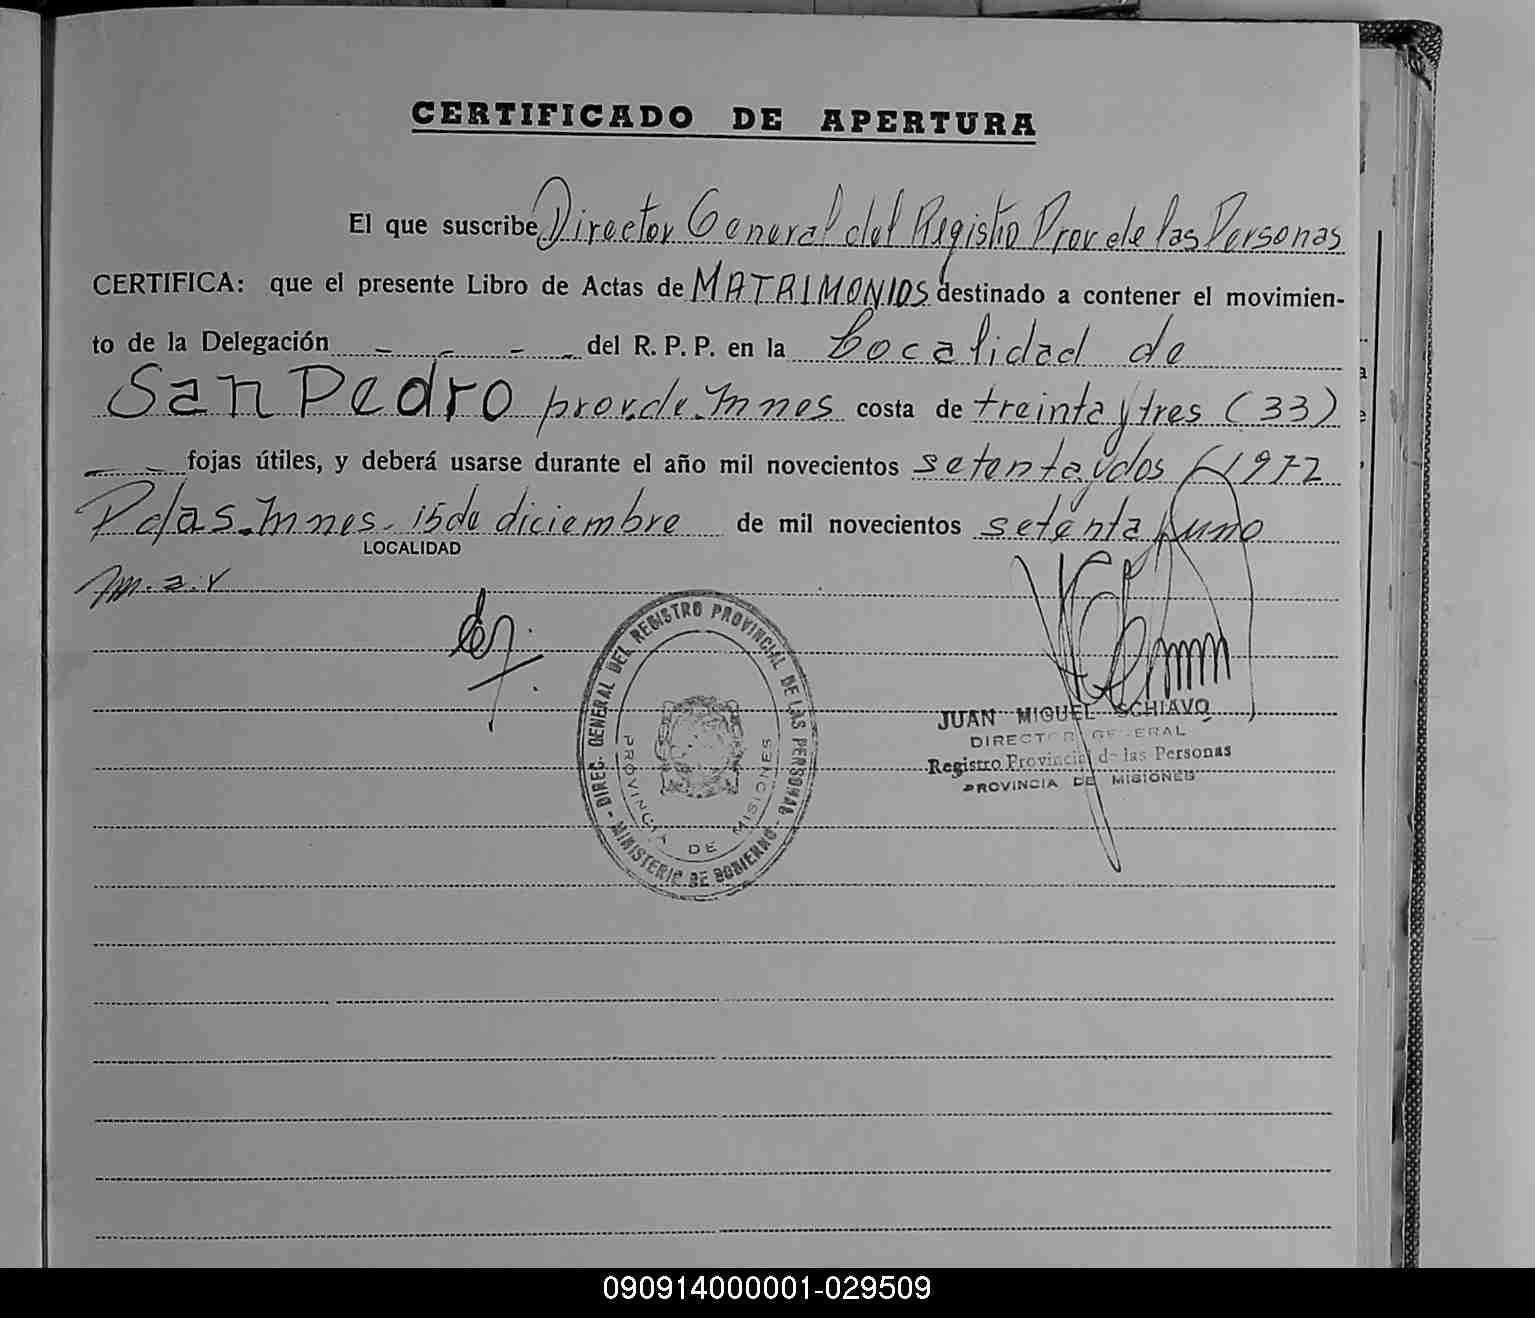 CERTIFICADO DE APERTURA
El que suscribe Director General del Registro Prov de las Personas
CERTIFICA: que el presente Libro de Actas de MATRIMONIOS destinado a contener el movimien-
to de la Delegación - - - - del R. P. P. en la Localidad de
San Pedro prov. de Mnes costa de treinta y tres (33)
- - fojas útiles, y deberá usarse durante el año mil novecientos setenta y dos (1972
Pdas. Mnes. 15 de diciembre de mil novecientos setenta y uno
LOCALIDAD
m.a.r
DIREC. GENERAL DEL REGISTRO PROVINCIAL DE LAS PERSONAS
- MINISTERIO DE GOBIERNO -
PROVINCIA DE MISIONES
JUAN MIGUEL SCHIAVO
DIRECTOR GENERAL
Registro Provincial de las Personas
PROVINCIA DE MISIONES
090914000001-029509